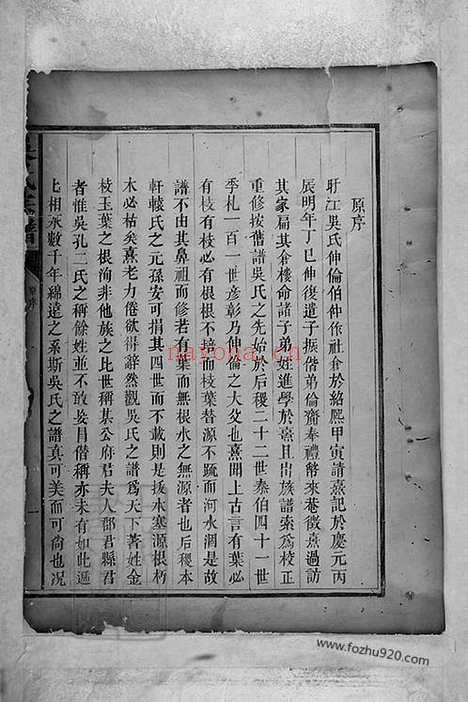 原序
盱江吳氏伸倫伯仲作社倉於紹熙甲寅請熹記於慶元丙
辰明年丁巳伸復遣子振偕弟倫齎奉禮幣來巷徵熹過訪
其家扁其倉樓命諸子弟姪進學於熹且出族譜索為校正
重修按舊譜吳氏之先始於后稷二十二世泰伯四十一世
季札一百一世彥彰乃伸倫之大父也熹聞上古言有葉必
有枝有枝必有根根不培而枝葉替源不疏而河水涸是故
譜不由其鼻祖而修者有葉而無根水之無源者也后稷本
軒轅氏之元孫安可捐其四世而不載則是拔木塞源根朽
木必枯矣熹老力倦欲得辭然觀吳氏之譜為天下著姓金
枝玉葉之根洵非他族之比世稱某公府君夫人郡君縣君
者惟吳孔二氏之稱餘姓並不敢妄冒僭稱亦未有如此遞
匕相承數千年綿遠之系斯吳氏之譜真可美而可尚也況
nayona.cn
www.fozhu920.com